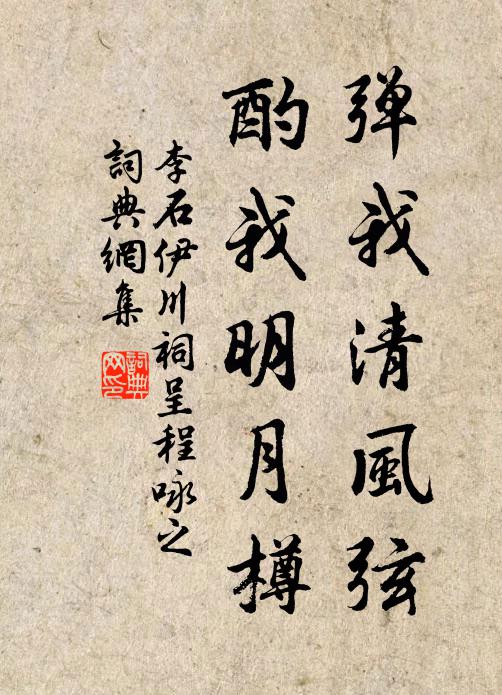 弹我清風弦
酌我明月樽
李石伊川祠呈程咏之
詞典網集
詞典網印